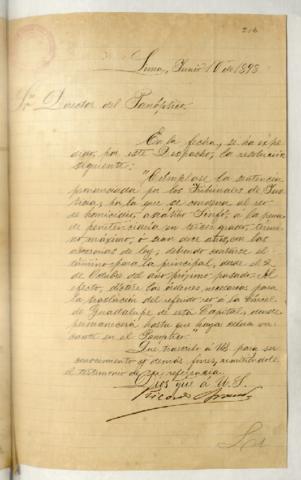 216
Lima, Junio 16 de 1898
Sr. Director del Panóptico.
En la fecha, se ha expe-
dido, por este Despacho, la resolución
siguiente:
"Cúmplase la sentencia
pronunciada por los Tribunales de Jus-
ticia, por la que se condena al reo
de homicidio, à la pena
de penitenciaría en tercer grado, térmi-
no máximo, ó sean doce años, con las
accesorias de ley, debiendo contarse el
término para la principal, desde el 2
de Octubre del año próximo pasado. Al
efecto, díctese las órdenes necesarias para
la traslación del referido reo à la Cárcel
de Guadalupe de esta Capital, donde
permanecerá hasta que haya celda va-
cante en el Panóptico".
Que transcribo à US. para su
conocimiento y demás fines, remitiéndole
el testimonio de su referencia.
Dios gue. à U.S.